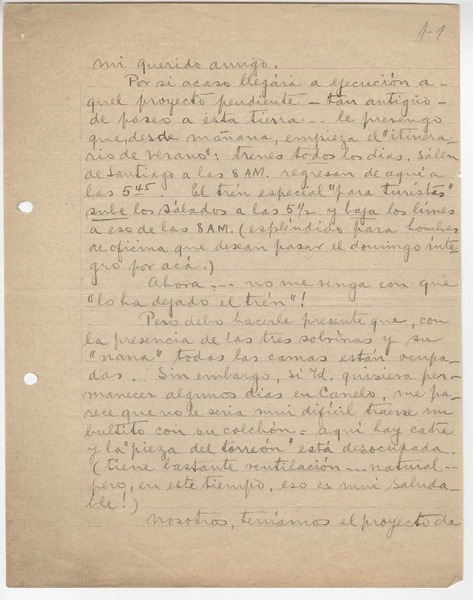 1-1
mi querido amigo.
Por si acaso llegára a ejecución a-
quel proyecto pendiente – tan antigüo –
de paseo a ésta tierra -- le prevengo
que, desde mañana, empieza el "itinera-
rio de verano": trenes todos los dias. Sálen
de Santiago a las 8 AM. regresan de aquí a
las 5 45. El trén especial "para turistas"
sube los sábados a las 5 1/2 y baja los lúnes
a eso de las 8 AM. (espléndido para hombres
de oficina que desean pasar el domingo ínte-
gro por acá.)
Ahora .... no me venga con que
"lo ha dejado el trén"!
Pero debo hacerle presente que, con
la presencia de las tres sobrinas y su
"nana" todas las camas están ocupa-
das... Sin embargo, si Ud. quisiera per-
manecer algunos dias en Canelo, me pa-
rece que no le seria mui difícil traerse un
bultito con su colchón = aquí hay catre
y la "pieza del torreón" está desocupada.
(tiene bastante ventilación ... natural --
pero, en este tiempo, eso es mui saluda-
ble!)
nosotros, teníamos el proyecto de